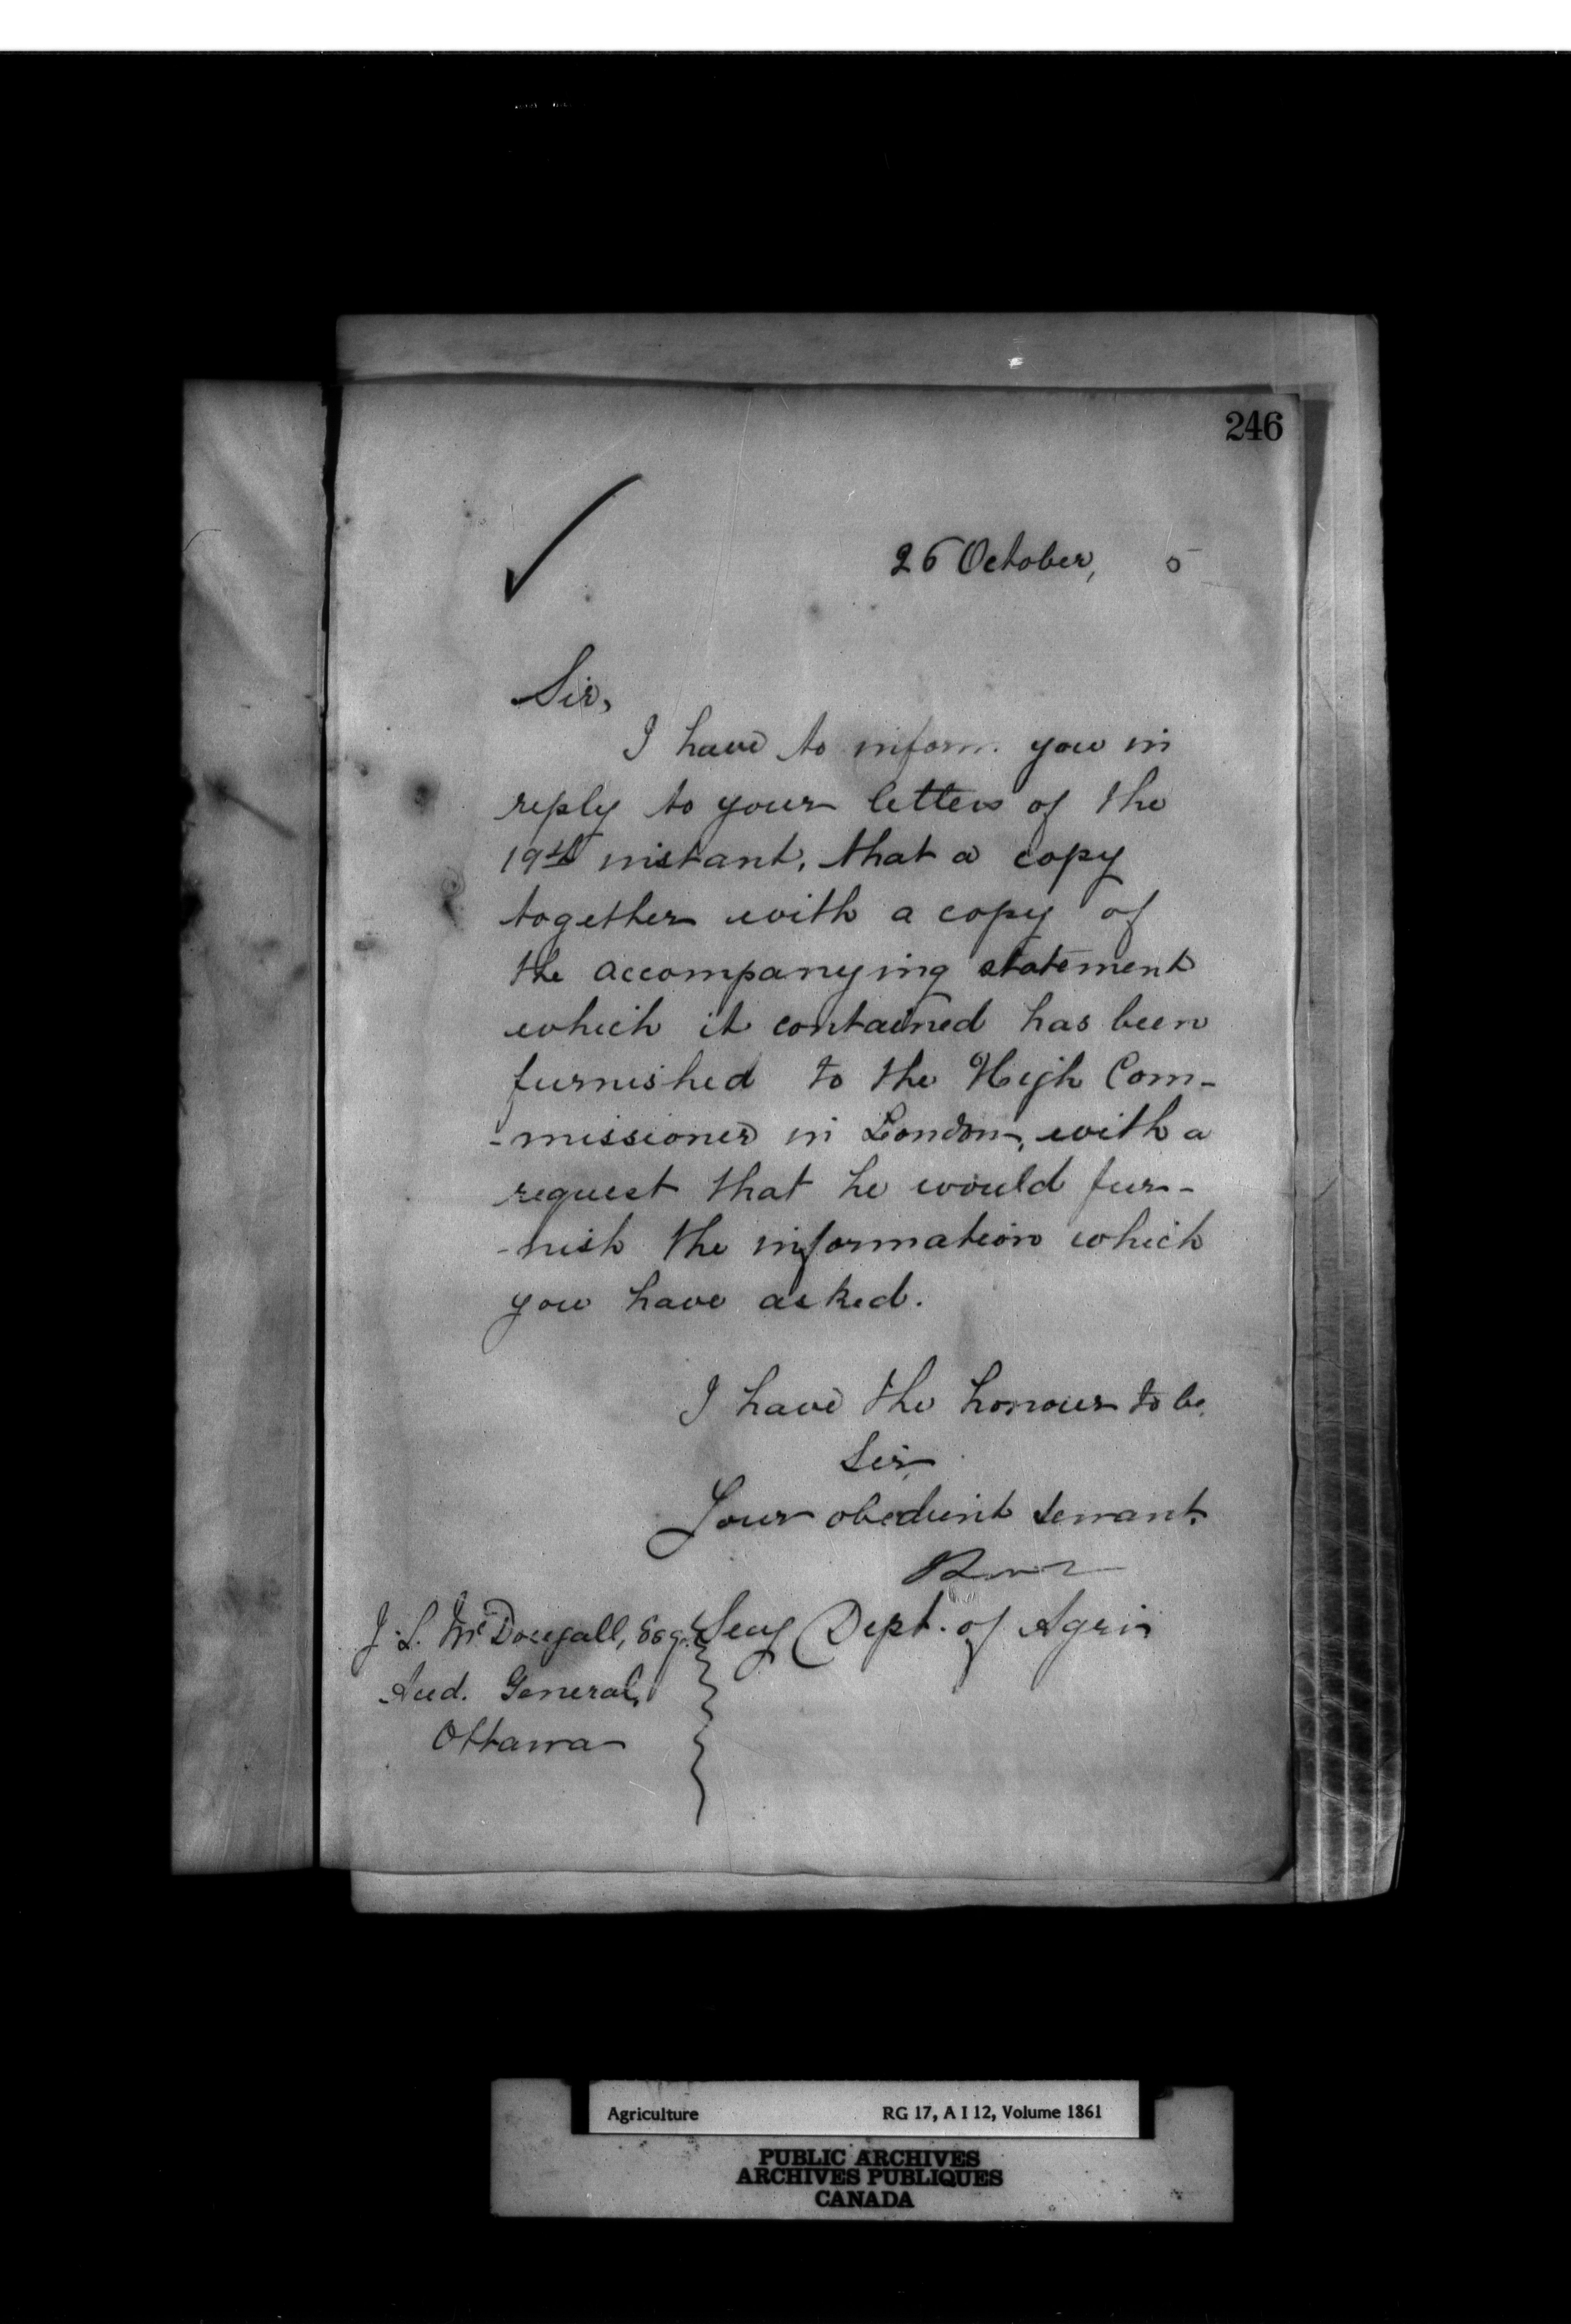 246
26 October, 5
Sir,
I have to inform you in
reply to your letters of the
19th instant, that a copy
together with a copy of
the accompanying statement
which it contained has been
furnished to the High Com-
-missioner in London, with a
request that he would fur-
-nish the information which
you have asked.
I have the honour to be
Sir
Your obedient servant.
Secy Dept. of Agri
J. L. McDougall, Esq.
Aud. General,
Ottawa
Agriculture RG 17, A I 12, Volume 1861
PUBLIC ARCHIVES
ARCHIVES PUBLIQUES
CANADA